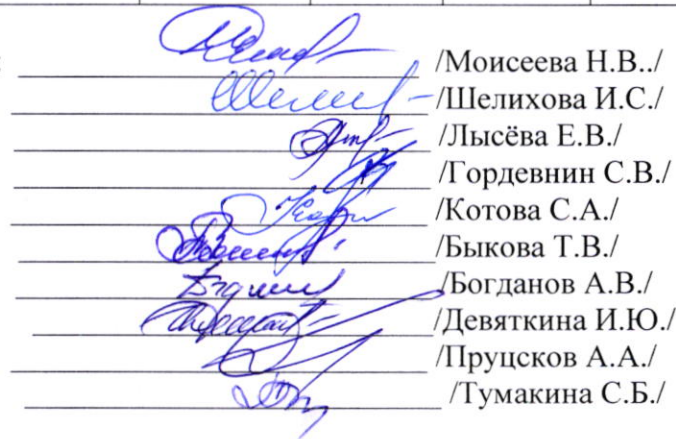 /Моисеева Н.В../
/Шелихова И.С./
/Лысёва Е.В./
/Гордевнин С.В./
/Котова С.А./
/Быкова Т.В./
/Богданов А.В./
/Девяткина И.Ю./
/Пруцсков А.А./
/Тумакина С.Б./